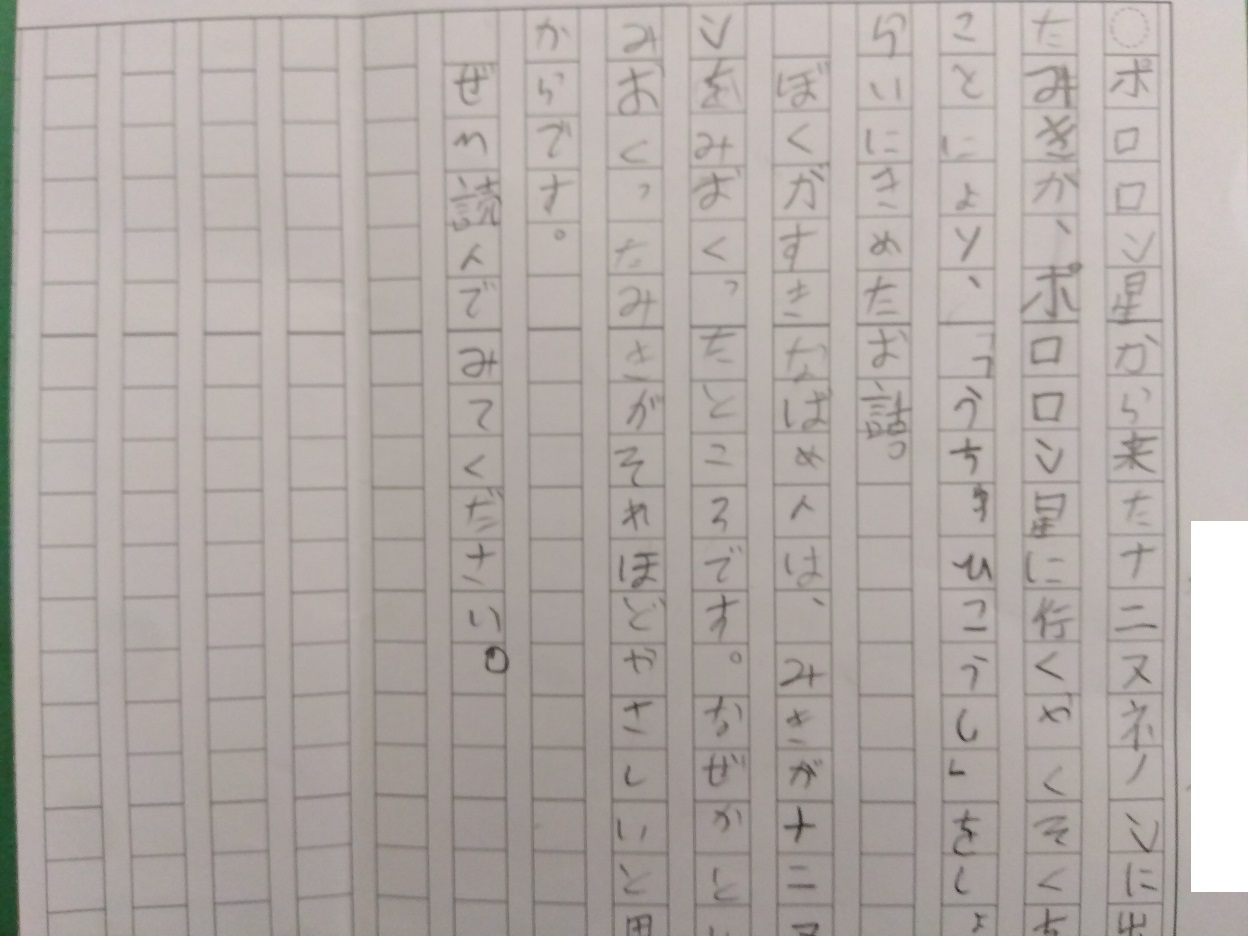 ポロロン星から来たナニヌネノンに出
たみきが、ポロロン星に行くやくそくち
ことにより、「うちゅうひこうし」をしょ
らいにきめたお話。
ぼくがすきなばめんは、みきがナニヌ
ンをみおくったところです。なぜかとい
みおくったみきがそれほどやさしいと思
からです。
ぜひ読んでみてください。